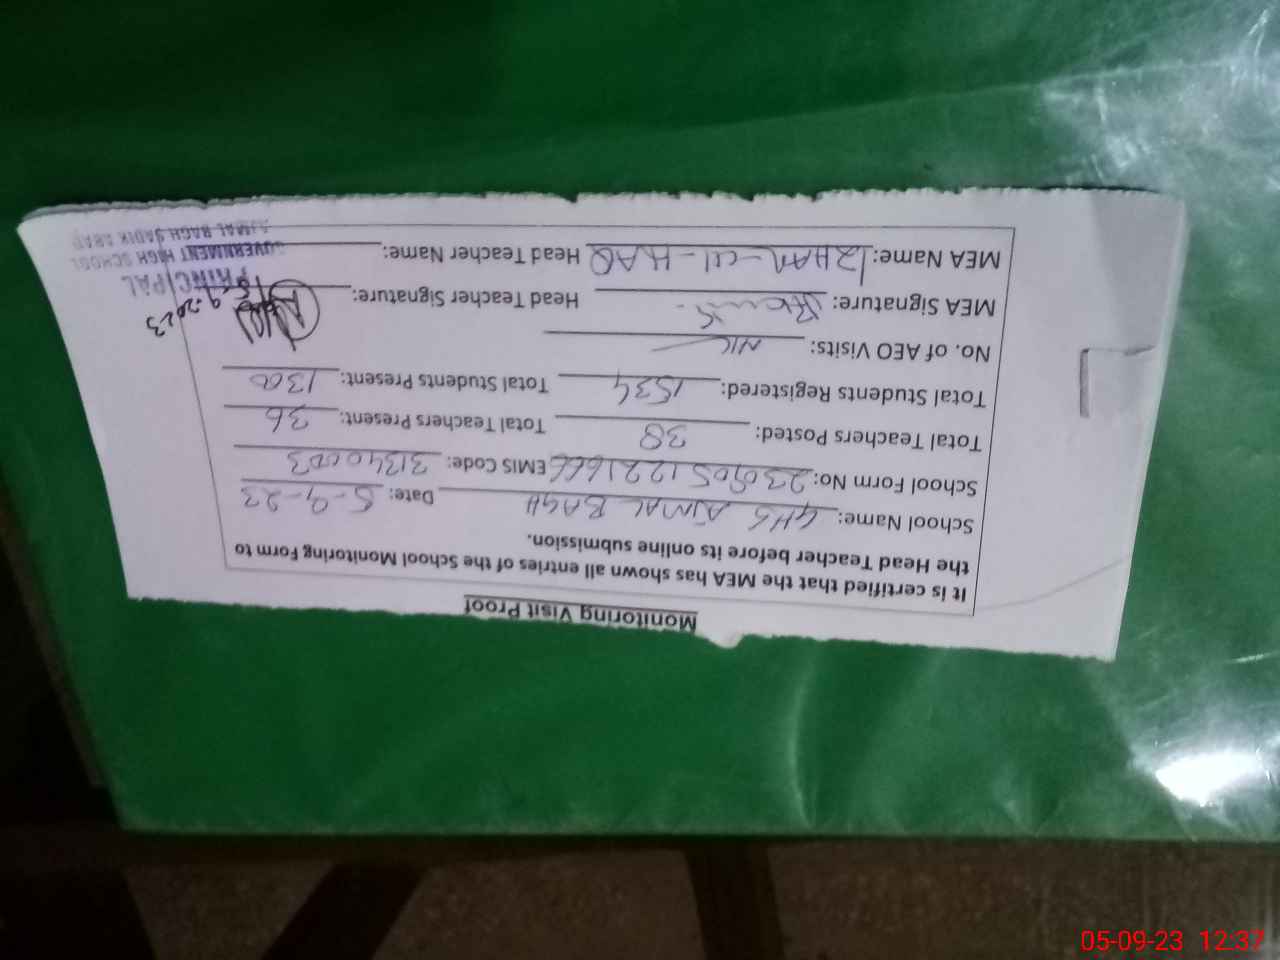 Monitoring Visit Proof
It is certified that the MEA has shown all entries of the School Monitoring Form to
the Head Teacher before its online submission.
School Name: GHS AJMAL BAGH Date: 5-9-23
School Form No: EMIS Code: 31340003
Total Teachers Posted: 38 Total Teachers Present: 36
Total Students Registered: 1534 Total Students Present: 1300
No. of AEO Visits: NIL
MEA Signature: Head Teacher Signature:
MEA Name: IZHAR-ul-HAQ Head Teacher Name:
5-9-2023
PRINCIPAL
GOVERNMENT HIGH SCHOOL
AJMAL BAGH SADIK ABAD
05-09-23 12:37